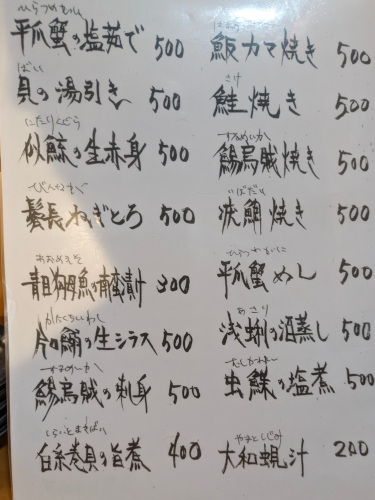 ひらつめがに
平爪蟹の塩茹で 500
ばい
貝の湯引き 500
にたりくじら
似鯨の生赤身 500
びんなが
鬢長ねぎとろ 500
あおめえそ
青目狗母魚の南蛮漬け 300
かたくちいわし
片口鰯の生シラス 500
するめいか
鯣烏賊の刺身 500
しらいとまきばい
白糸巻貝の旨煮 400
カマ焼き 500
さけ
鮭焼き 500
するめいか
鯣烏賊焼き 500
いぼだい
疣鯛焼き 500
ひらつめがに
平爪蟹めし 500
あさり
浅蜊の酒蒸し 500
虫鰈の塩煮 500
やまとしじみ
大和蜆汁 200